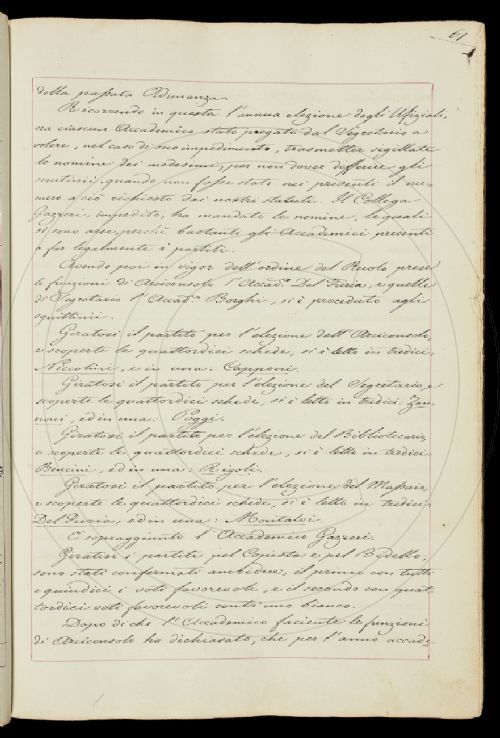 61
della passata Adunanza.
Ricorrendo in questa l'annua elezione degli Ufiziali,
era ciascun Accademico stato pregato dal Segretario a
volere, nel caso di suo impedimento, trasmetter sigillate
le nomine dei medesimi, per non dover differire gli
scrutinii, quando non fosse stato nei presenti il nu-
mero a ciò richiesto dai nostri statuti. Il Collega
Gazzeri, impedito, ha mandato le nomine, le quali
si sono arse, perchè bastanti gli Accademici presenti
a far legalmente i partiti.
Avendo poi in vigor dell'ordine del Ruolo prese
le funzioni di Arciconsolo l'Accad.º Del Furia, e quelle
di Segretario l'Accad.º Borghi, si è proceduto agli
squittinii.
Giratosi il partito per l'elezione dell'Arciconsolo,
e scoperte le quattordici schede, si è letto in tredici,
Niccolini, e in una: Capponi.
Giratosi il partito per l'elezione del Segretario, e
scoperte le quattordici schede, si è letto in tredici: Zan-
noni, ed in una: Poggi.
Giratosi il partito per l'elezione del Bibliotecario,
e scoperte le quattordici schede, si è letto in tredici
Bencini, ed in una: Rigoli.
Giratosi il partito per l'elezione del Massaio,
e scoperte le quattordici schede, si è letto in tredici:
Del Furia, ed in una: Montalvi
È sopraggiunto l'Accademico Gazzeri.
Giratisi i partiti pel Copista e pel Bidello,
sono stati confermati ambedue, il primo con tutti
e quindici i voti favorevoli, e il secondo con quat-
tordici voti favorevoli contr'uno bianco.
Dopo di che l'Accademico faciente le funzioni
di Arciconsolo ha dichiarato, che per l'anno accade-